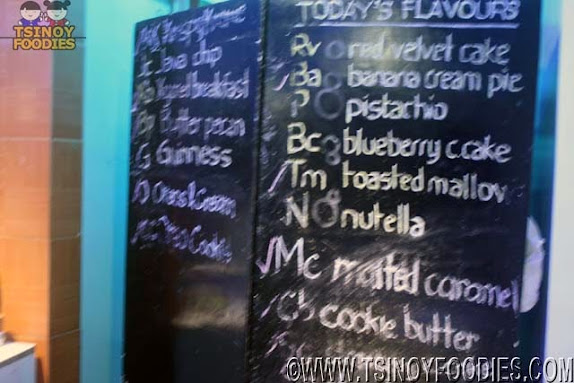 TSINOY
FOODIES
Java chip
breakfast
Bp Butter pecan
G Guinness
Cream
Cookie
TODAY'S FLAVOURS
Rv red velvet cake
Ba banana cream pie
P pistachio
Bc blueberry c.cake
Tm toasted mallow
N nutella
Mc malted caramel
Cb cookie butter
©WWW.TSINOYFOODIES.COM